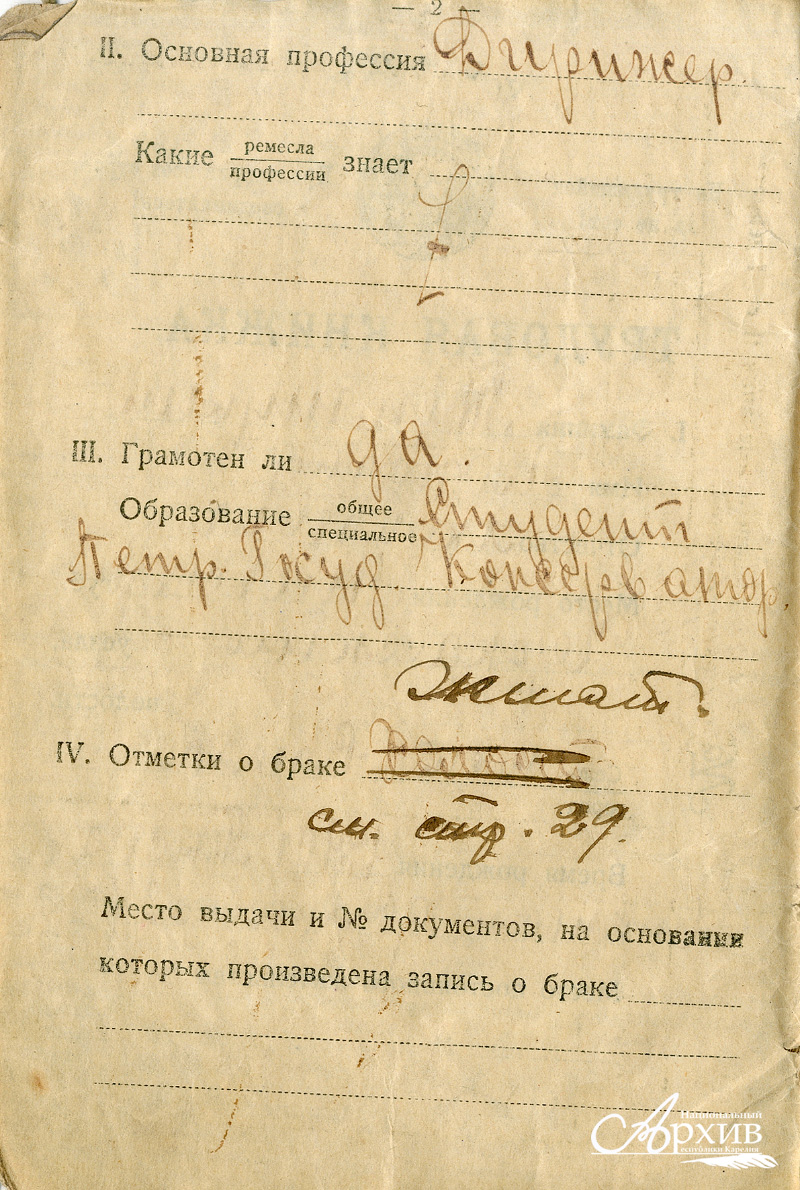 — 2 —
II. Основная профессия Дирижер.
Какие ремесла
профессии знает
III. Грамотен ли да.
Образование общее
специальное Студент
Петр. Госуд. Консерватор.
женат.
IV. Отметки о браке
см. стр. 29.
Место выдачи и № документов, на основании
которых произведена запись о браке
Национальный
Архив
республики Карелия